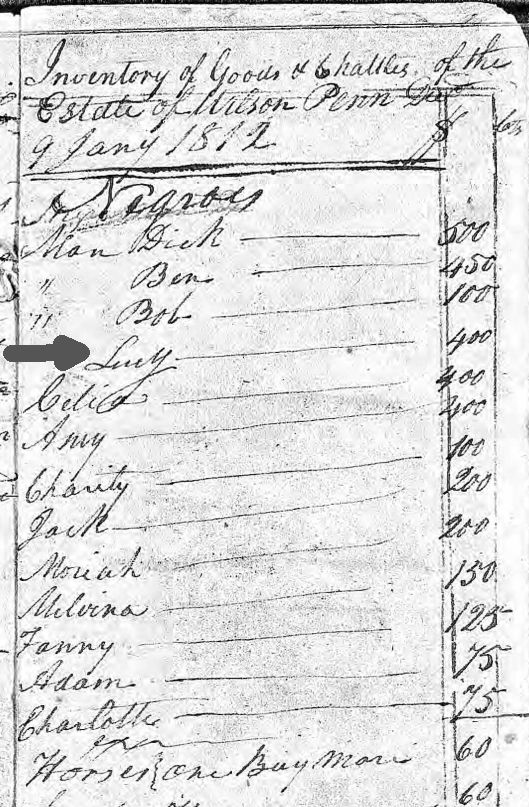 Inventory of Goods & Chattles of the
Estate of Wilson Penn Decd
9 Jany 1812 $ Cts
Negroes
Man Dick 500
" Ben 450
" Bob 100
Lucy 400
Celia 400
Amy 400
Charity 100
Jack 200
Moriah 200
Milvina 150
Fanny 125
Adam 75
Charlotte 75
Horses one Bay Mare 60
60